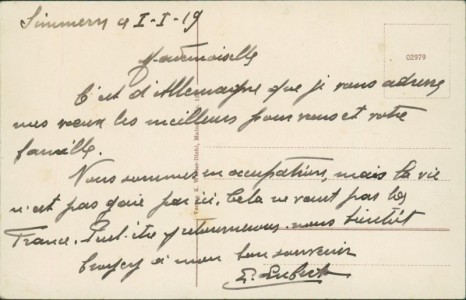 Simmern le I-I-19
02979
Mademoiselle
C'est d'Allemagne que je vous adresse
mes vœux les meilleurs pour vous et votre
famille.
Nous sommes en occupation, mais la vie
n'est pas gaie par ici. Cela ne vaut pas la
France. Peut-être y retournerons-nous bientôt
Croyez à mon bon souvenir